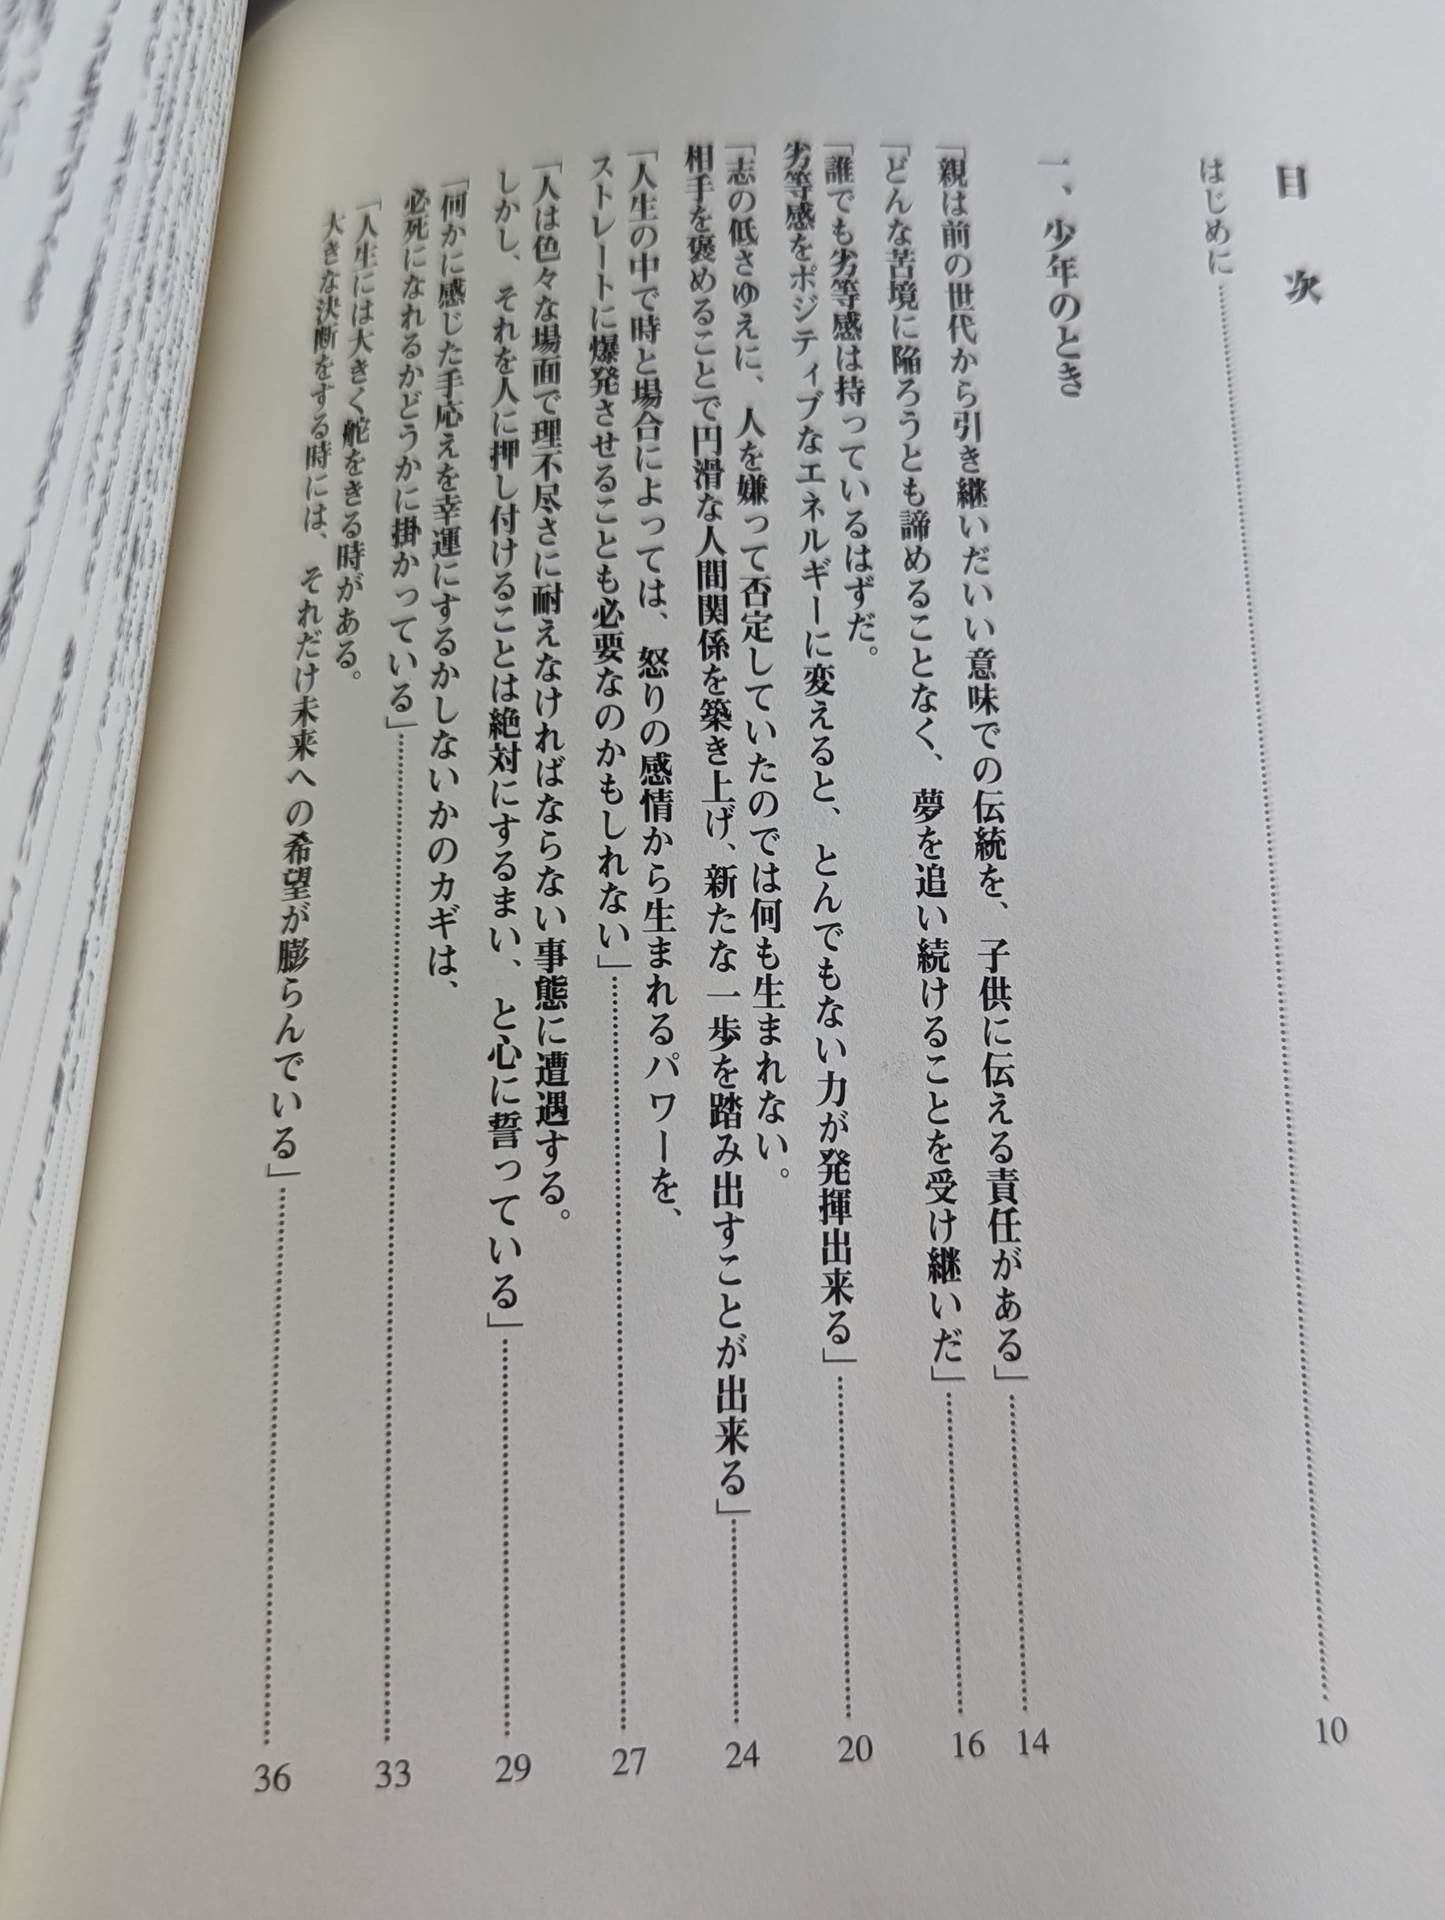 目次
はじめに……10
一、少年のとき
「親は前の世代から引き継いだいい意味での伝統を、子供に伝える責任がある」……14
「どんな苦境に陥ろうとも諦めることなく、夢を追い続けることを受け継いだ」……16
「誰でも劣等感は持っているはずだ。
劣等感をポジティブなエネルギーに変えると、とんでもない力が発揮出来る」……20
「志の低さゆえに、人を嫌って否定していたのでは何も生まれない。
相手を褒めることで円滑な人間関係を築き上げ、新たな一歩を踏み出すことが出来る」……24
「人生の中で時と場合によっては、怒りの感情から生まれるパワーを、
ストレートに爆発させることも必要なのかもしれない」……27
「人は色々な場面で理不尽さに耐えなければならない事態に遭遇する。
しかし、それを人に押し付けることは絶対にするまい、と心に誓っている」……29
「何かに感じた手応えを幸運にするかしないかのカギは、
必死になれるかどうかに掛かっている」……33
「人生には大きく舵をきる時がある。
大きな決断をする時には、それだけ未来への希望が膨らんでいる」……36